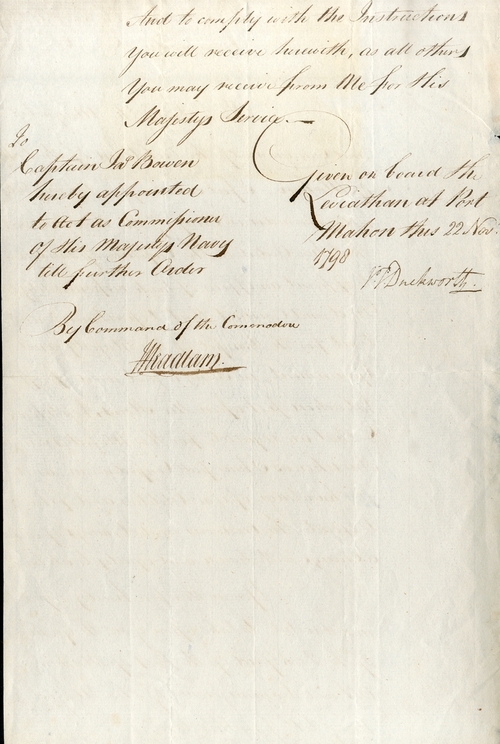 And to comply with the Instructions
You will receive herewith, as all others
You may receive from Me for His
Majestys Service.—
To
Captain Jas. Bowen
hereby appointed
to Act as Commissioner
of His Majestys Navy
till further Order
Given on board the
Leviathan at Port
Mahon this 22 Nov.
1798
J T Duckworth.
By Command of the Commodore